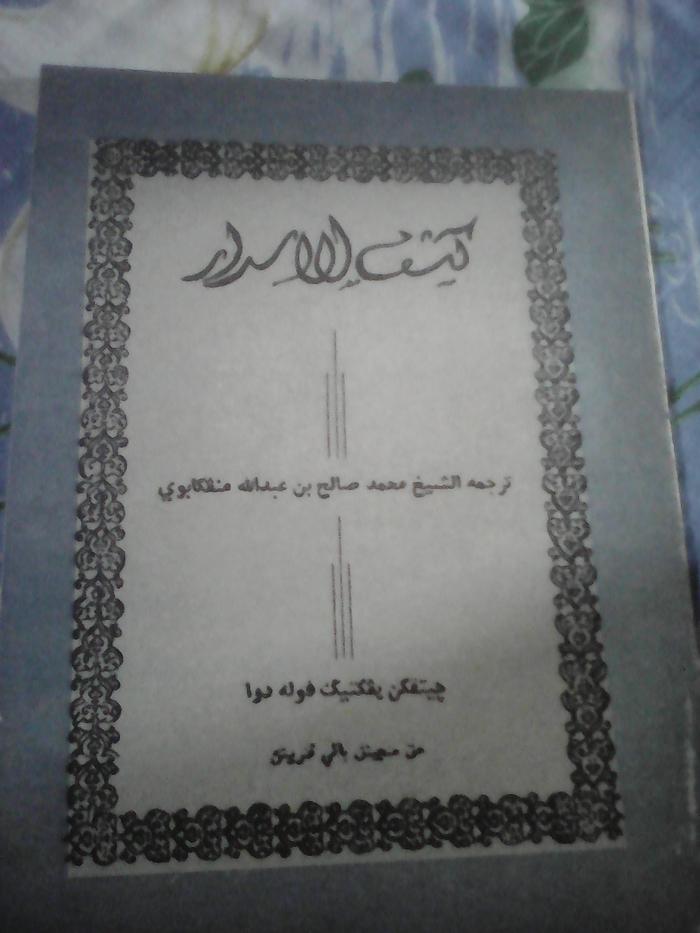 كشف الاسرار
ترجمه الشيخ محمد صالح بن عبدالله منڠكابوي
چيتقكن يڠكتيݢ فوله دوا